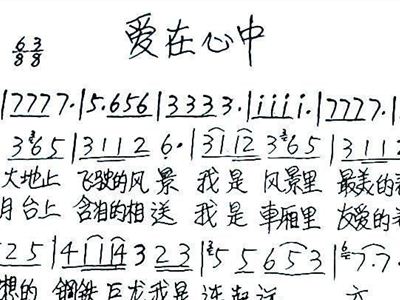 爱在心中
6/8 3/8
|7777·|5·656|3333·|iiii·|7777·|
3 65|3112 6·|31·12 3 65|3112
大地上 飞驶的风景 我是 风景里 最美的
月台上 含泪的相送 我是 車厢里 友爱的
25|4114323|55653|7·7·
想的 鋼鉄巨龙我是